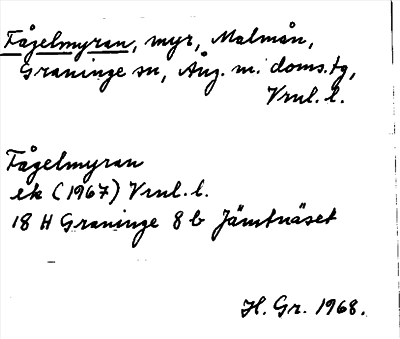 Fågelmyran, myr, Malmån,
Graninge sn, Ång. m. doms.tg,
Vrnl. l.
Fågelmyran
ek (1967) Vrnl. l.
18 H Graninge 8 b Jämtnäset
H. Gr. 1968.